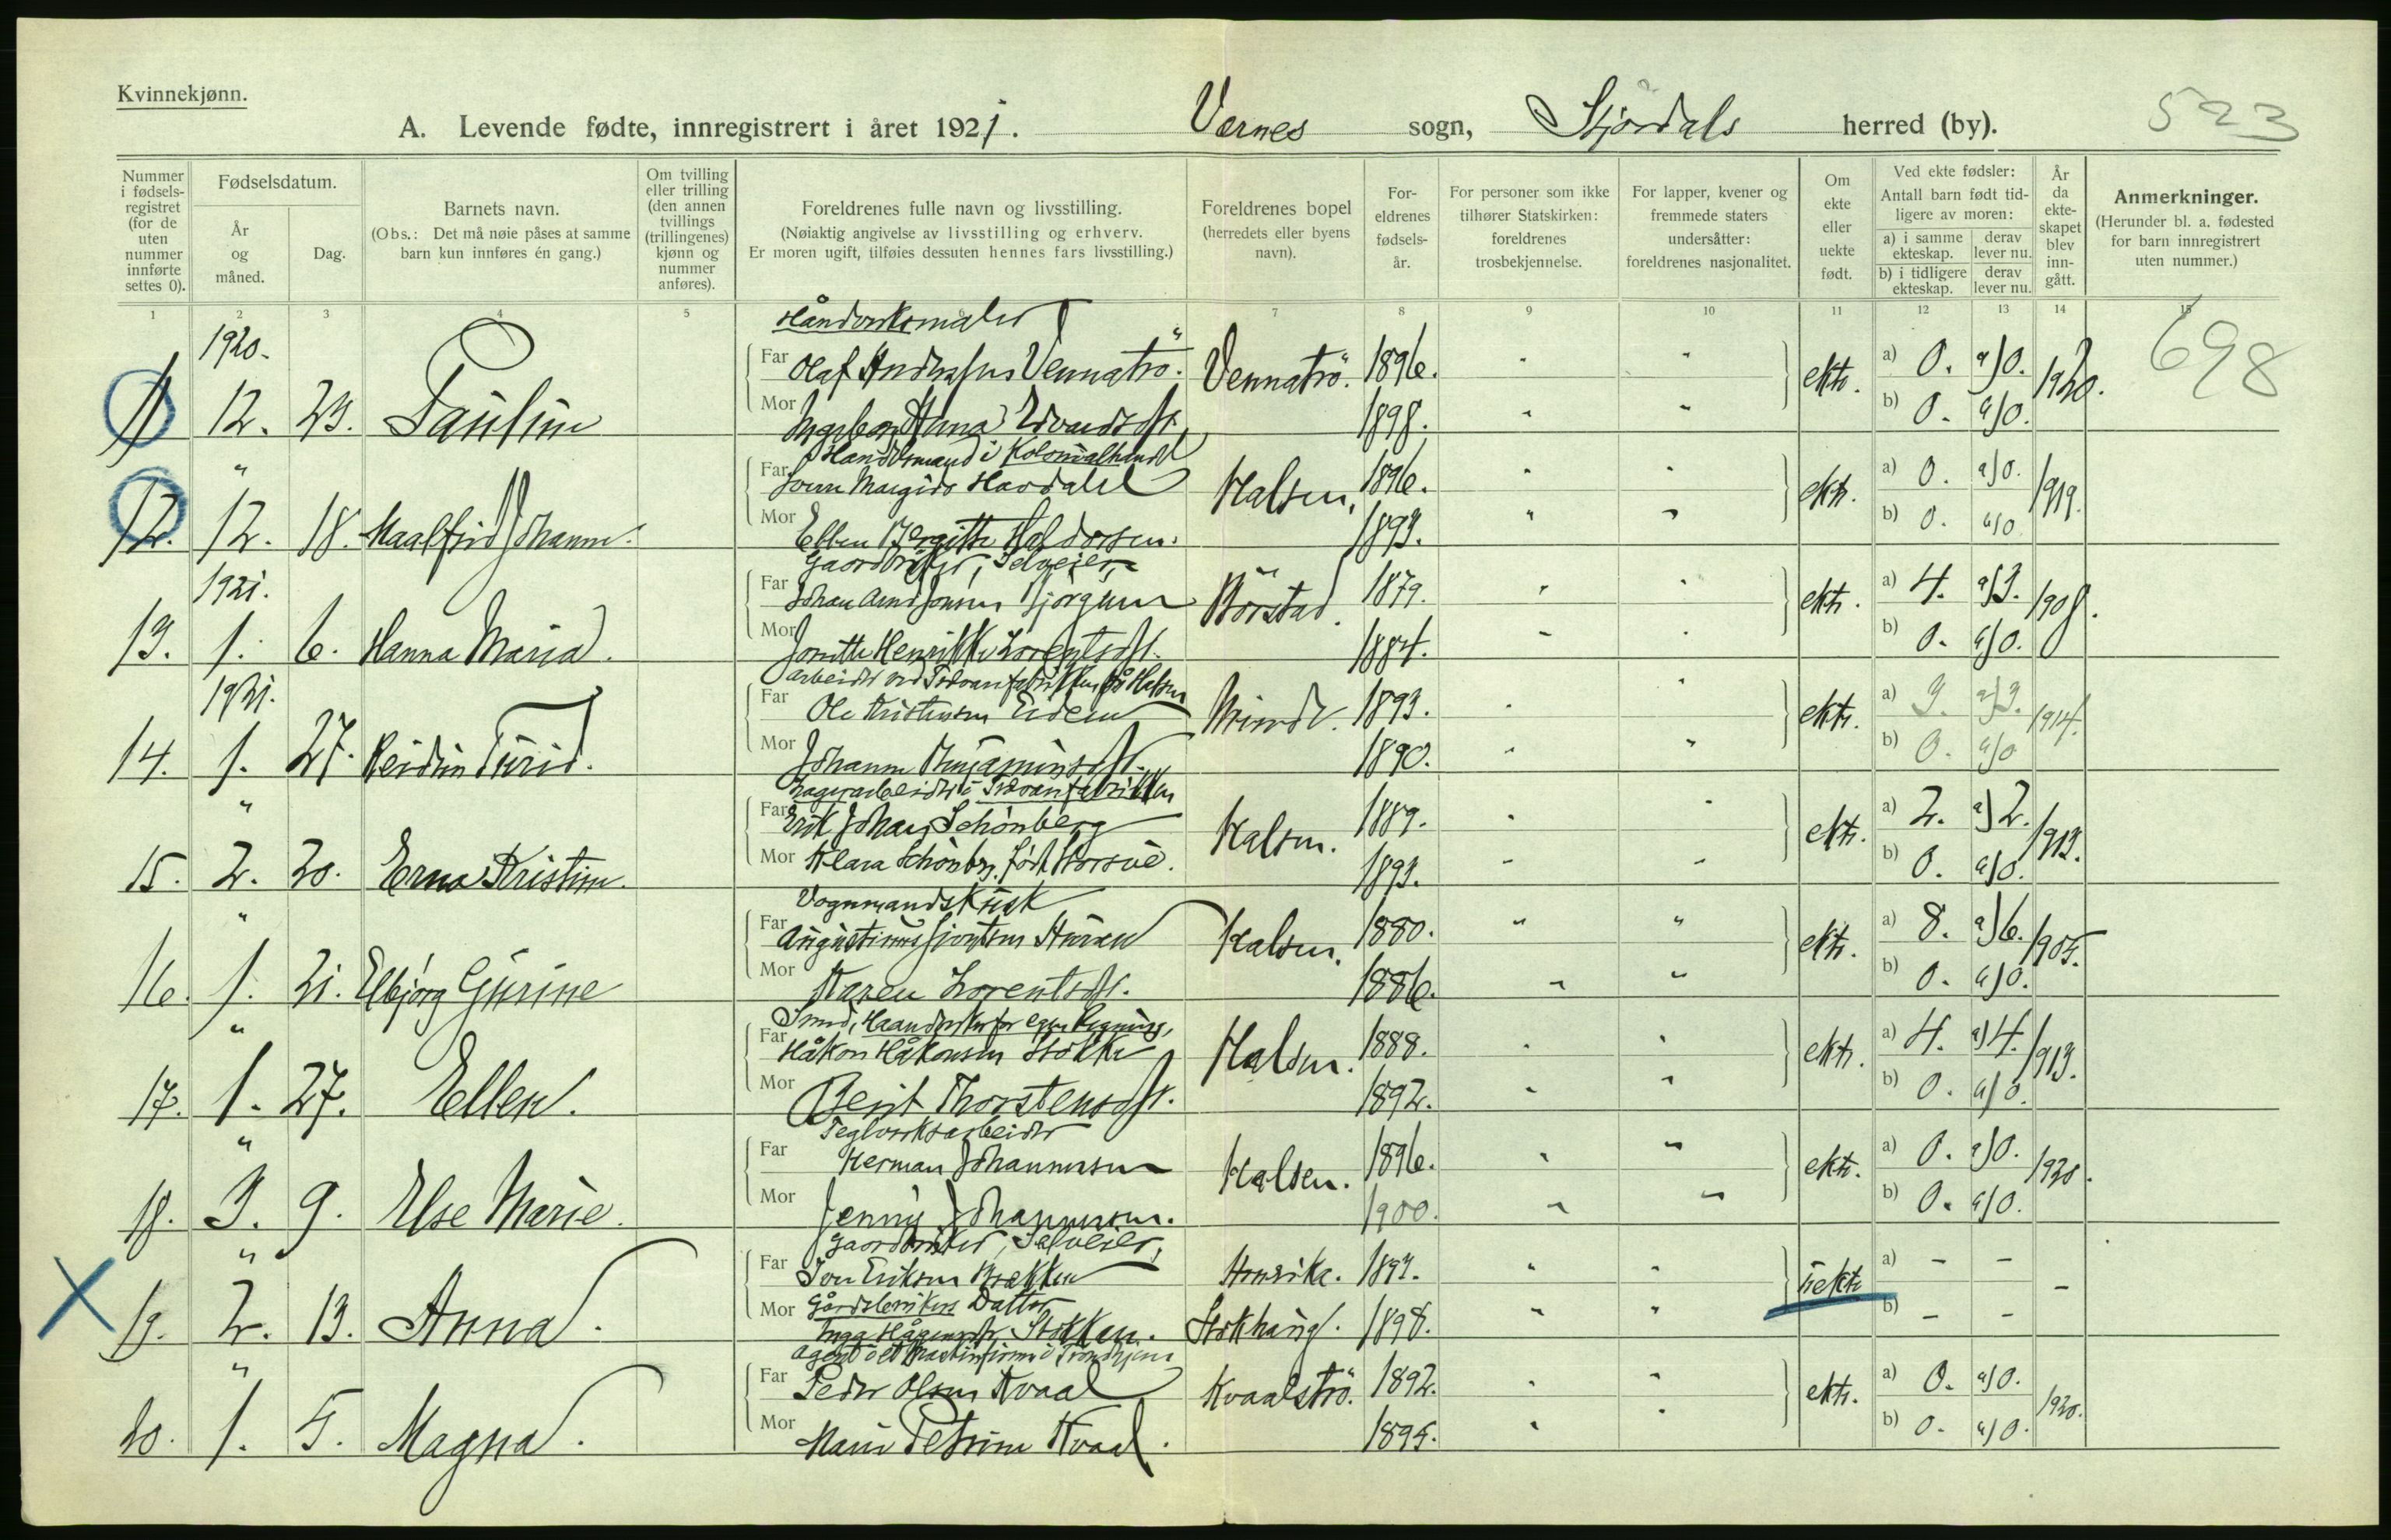 Kvinnekjønn.
A. Levende fødte, innregistrert i året 1921. Værnes sogn, Stjørdals herred (by). 523
Nummer i fødsels-registret (for de uten nummer innførte settes 0).
Fødselsdatum.
År og måned.
Dag.
Barnets navn.
(Obs.: Det må nøie påses at samme barn kun innføres én gang.)
Om tvilling eller trilling (den annen tvillings (trillingenes) kjønn og nummer anføres).
Foreldrenes fulle navn og livsstilling.
(Nøiaktig angivelse av livsstilling og erhverv.
Er moren ugift, tilføies dessuten hennes fars livsstilling.)
Foreldrenes bopel (herredets eller byens navn).
For-eldrenes fødsels-år.
For personer som ikke tilhører Statskirken: foreldrenes trosbekjennelse.
For lapper, kvener og fremmede staters undersåtter: foreldrenes nasjonalitet.
Om ekte eller uekte født.
Ved ekte fødsler:
Antall barn født tid-ligere av moren:
a) i samme ekteskap. derav lever nu.
b) i tidligere ekteskap. derav lever nu.
År da ekte-skapet blev inn-gått.
Anmerkninger.
(Herunder bl. a. fødested for barn innregistrert uten nummer.)
1 2 3 4 5 7 8 9 10 11 12 13 14 15
Håndverksmaler
1920. Far Olaf Andreasen Vennatrö. Vennatrö. 1896. " " ekte. a) 0. a) 0. 1920. 698
11 12. 23. Pauline Mor Ingeborg Anna Edvardsdt. 1898. " " b) 0. a) 0.
Handelsmand i Kolonialhandel
" Far Margido Havdahl Halsen. 1896. " " ekte. a) 0. a) 0. 1919.
12. 12. 18. Maalfrid Johanne. Mor Ellen Bergitte Haldorsen. 1893. " " b) 0. a) 0
Gaardbruker, Selveier,
1921. Far Johan Arnt Jonsen Bjørgum Börstad. 1879. " " ekte. a) 4. a) 3. 1908.
13. 1. 6. Hanna Maria. Mor Jonette Henrikke Lorentsdt. 1884. " " b) 0. a) 0.
Arbeider ved Trevarefabrikken på Halsen
1921. Far Ole Kristensen Eidem 1893. " " ekte. a) 3. a) 3. 1914.
14. 1. 27. Reidun Turid. Mor Johanne Benjaminsdt. 1890. " " b) 0. a) 0
Lagerarbeider i Trevarefabrikken
" Far Erik Johan Schönberg Halsen. 1889. " " ekte. a) 2. a) 2. 1913.
15. 2. 20. Erna Kristine. Mor Klara Schönberg, født 1893. " " b) 0. a) 0.
Vognmandskusk
" Far Augustinus Halsen. 1880. " " ekte. a) 8. a) 6. 1905.
16. 1. 21. Elbjørg Gurine Mor Karen Lorentsdt. 1886. " " b) 0. a) 0.
Smed, Haandverker for egen Regning,
" Far Håkon Håkonsen Stokke Halsen. 1888. " " ekte. a) 4. a) 4. 1913.
17. 1. 27. Ellen. Mor Berit Thorstensdt. 1892. " " b) 0. a) 0.
Teglverksarbeider
" Far Herman Johannessen Halsen. 1896. " " ekte. a) 0. a) 0. 1920.
18. 3. 9. Else Marie. Mor Jenny Johannessen. 1900. " " b) 0. a) 0.
Gaardbruker, Selveier,
" Far Jon Eriksen Brækken Amerika. 1893. " " uekte a) – – –
Gårdbrukers Datter
X 19. 2. 13. Anna. Mor Inga Stokkan. Stokhaug. 1898. " " b) – –
Agent i et Maskinfirma i Trondhjem
" Far Peder Olsen Kvaal Kvaalströ. 1892. " " ekte. a) 0. a) 0. 1920.
20. 1. 5. Magna. Mor Marie Petrine Kvaal. 1895. " " b) 0. a) 0.